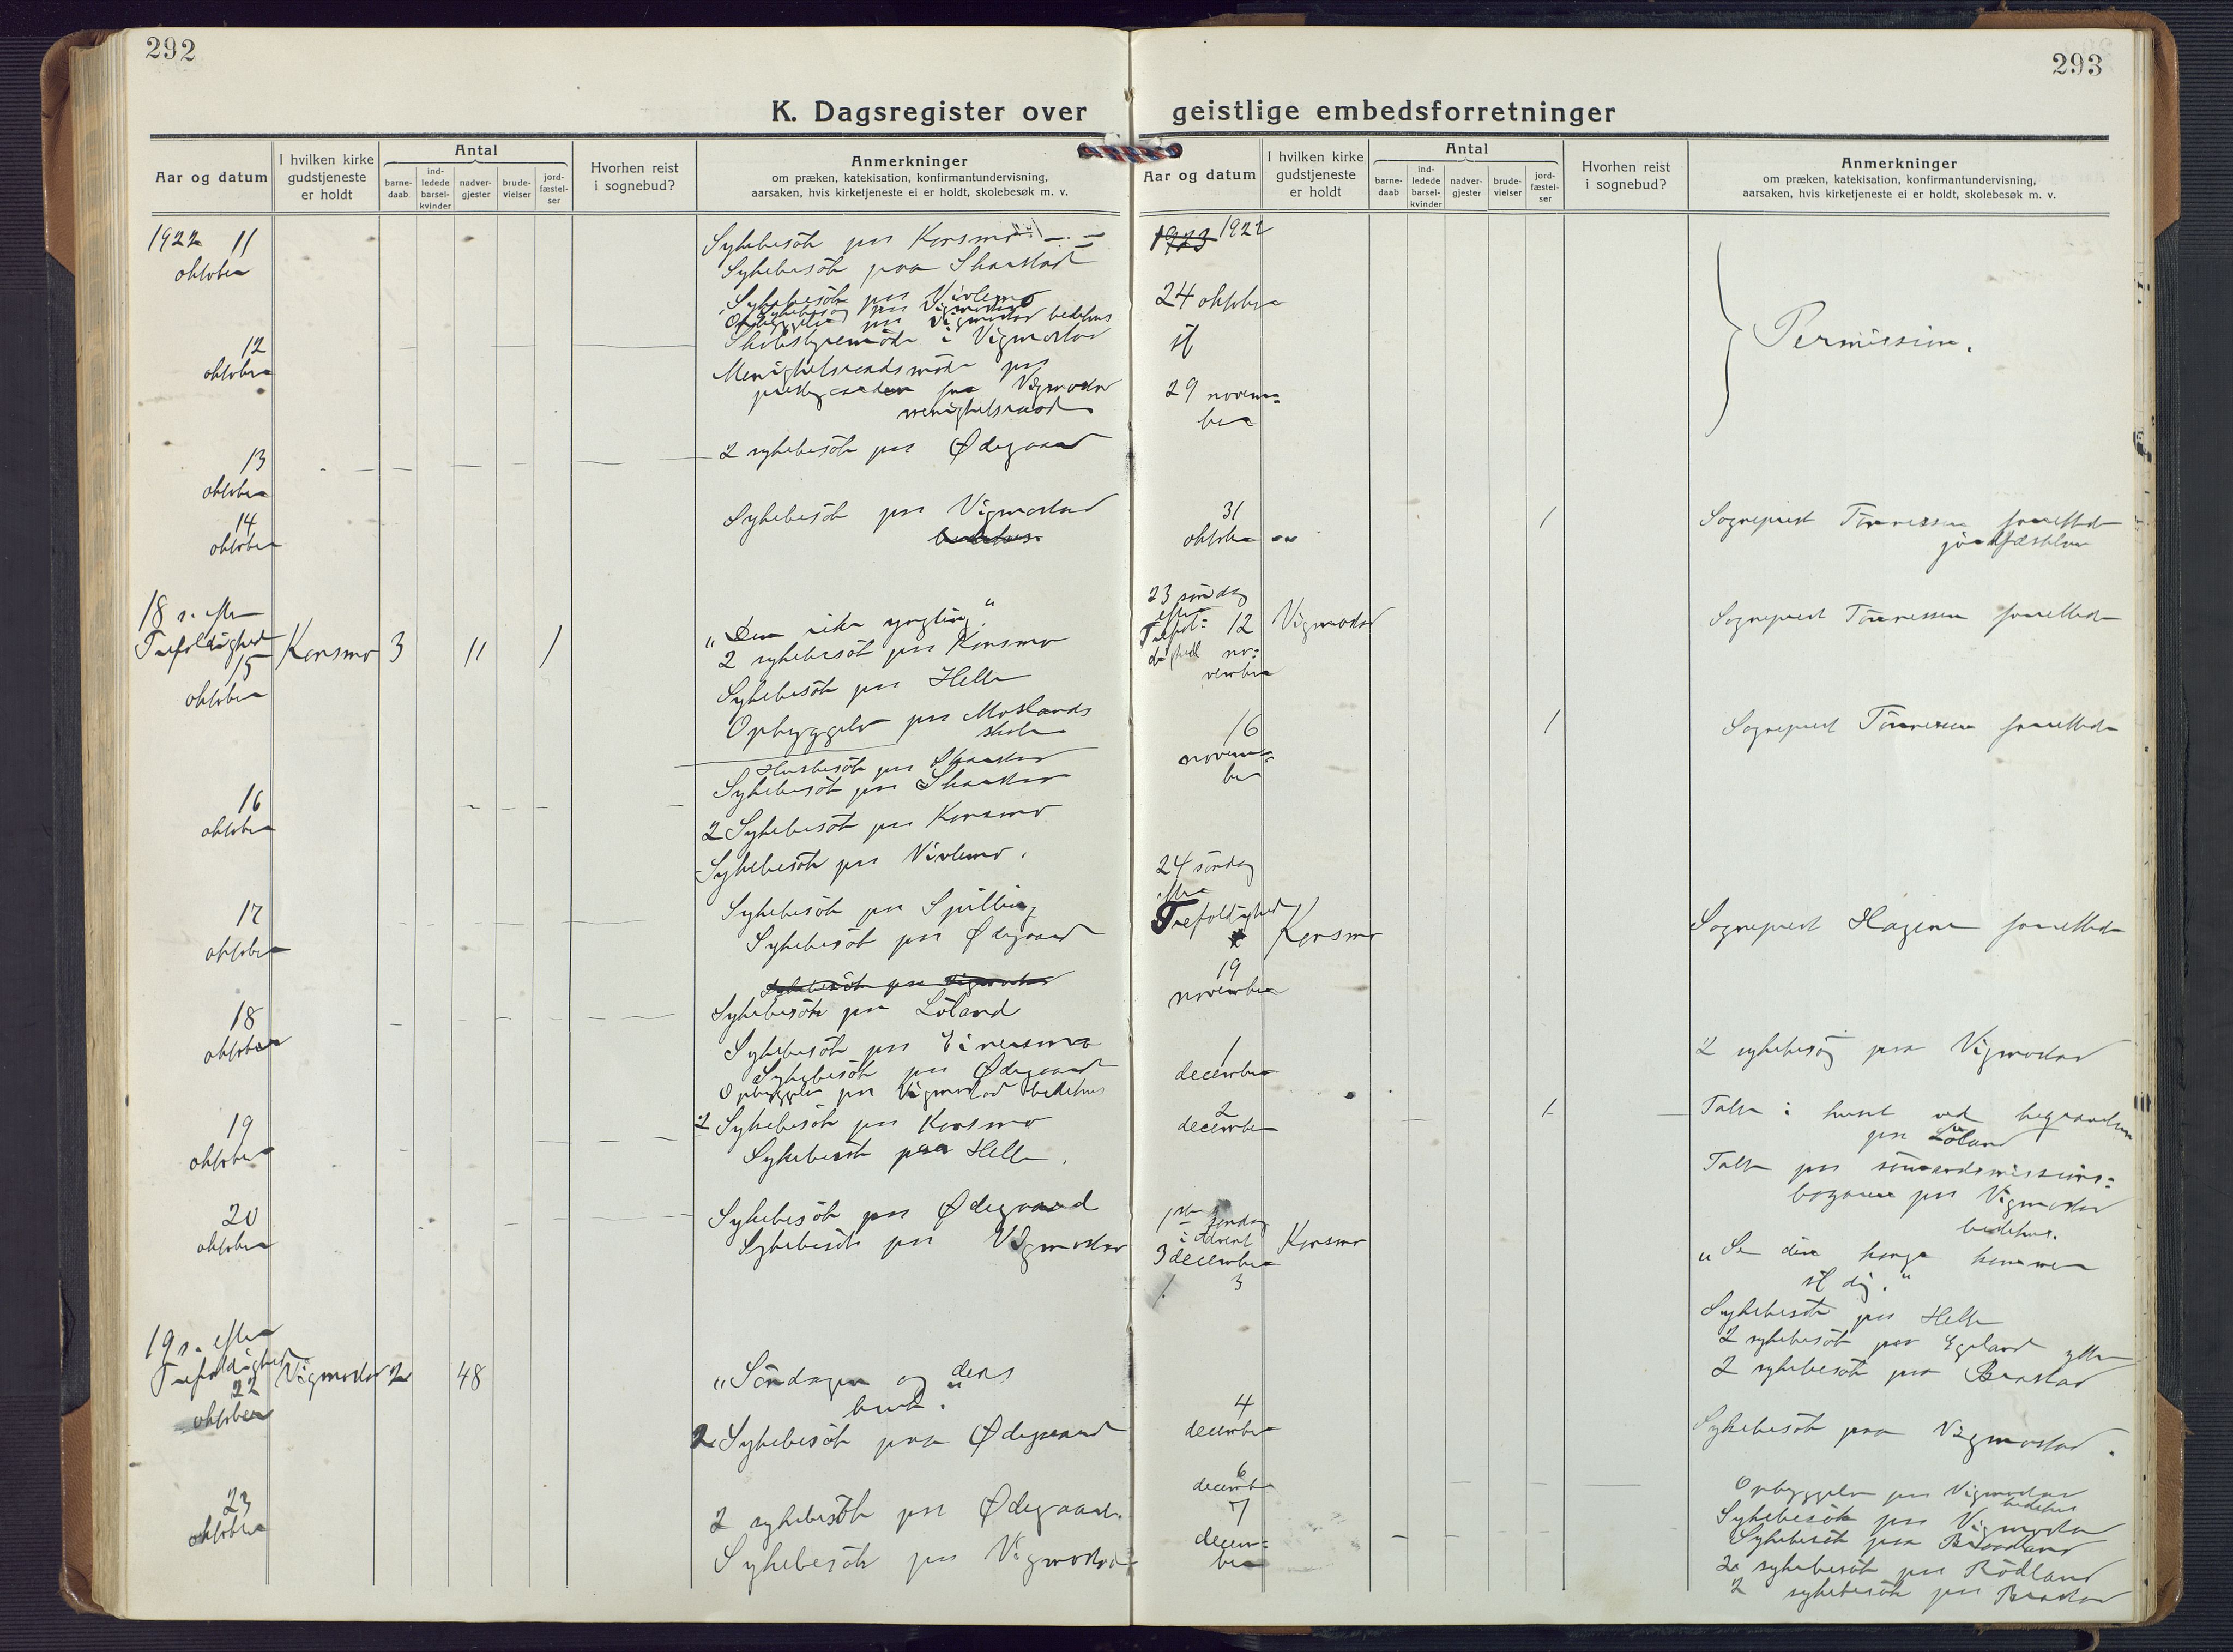 292
K. Dagsregister over
Aar og datum
I hvilken kirke
gudstjeneste
er holdt
Antal
barne-
daab
ind-
ledede
barsel-
kvinder
nadver-
gjester
brude-
vielser
jord-
fæstel-
ser
Hvorhen reist
i sognebud?
Anmerkninger
om præken, katekisation, konfirmantundervisning,
aarsaken, hvis kirketjeneste ei er holdt, skolebesøk m. v.
1922 11
oktober
Sykebesök paa Konsmo
Sykebesök paa Skarstad
Sykebesök paa Vivlemo
Opbyggelse paa Vigmostad bedehus
12
oktober
Skolestyremöde i Vigmostad
Menighetsraadsmöde paa
prestegaarden for Vigmostad
menighetsraad
13
oktober
2 sykebesök paa Ødegaard
14
oktober
Sykebesök paa Vigmostad
bedehus.
18 s. efter
Trefoldighed
15
oktober
Konsmo 3 11 1
"Den rike yngling."
2 sykebesök paa Konsmo
Sykebesök paa Helle
Opbyggelse paa Moslands
skole
Husbesök paa Skarstad
16
oktober
Sykebesök paa Skarstad
2 Sykebesök paa Konsmo
Sykebesök paa Vivlemo.
17
oktober
Sykebesök paa Spilling
Sykebesök paa Ødegaard
Sykebesök paa Vigmostad
18
oktober
Sykebesök paa Löland
Sykebesök paa
Sykebesök paa Ødegaard
Opbyggelse paa Vigmostad bedehus
19
oktober
2 Sykebesök paa Konsmo
Sykebesök paa Helle.
20
oktober
Sykebesök paa Ødegaard
Sykebesök paa Vigmostad
19 s. efter
Trefoldighed
22
oktober
Vigmostad 2 48
"Söndagen og dens
bruk."
2 Sykebesök paa Ødegaard
23
oktober
2 sykebesök paa Ødegaard.
Sykebesök paa Vigmostad
293
geistlige embedsforretninger
Aar og datum
I hvilken kirke
gudstjeneste
er holdt
Antal
barne-
daab
ind-
ledede
barsel-
kvinder
nadver-
gjester
brude-
vielser
jord-
fæstel-
ser
Hvorhen reist
i sognebud?
Anmerkninger
om præken, katekisation, konfirmantundervisning,
aarsaken, hvis kirketjeneste ei er holdt, skolebesøk m. v.
1923 1922
24 oktober
til
29 novem=
ber
Permission.
31
oktober
1
Sogneprest Tönnessen forrettede
jordfæstelsen
23 söndag
efter
Trefol=
dighed
12
no=
vember
Vigmostad
Sogneprest Tönnessen forrettede
16
novem=
ber
1
Sogneprest Tönnessen forrettede
24 söndag
efter
Trefoldighed
Konsmo
19
november
Sogneprest Hagene forrettede
1
december
2 sykebesög paa Vigmostad
2
december
1
Talte i huset ved begravelsen
paa Löland
Talte paa sömandsmissions=
bazaren paa Vigmostad
bedehus.
1ste söndag
i advent
3 december
3
Konsmo
"Se din konge kommer
til dig."
Sykebesök paa Helle
2 sykebesök paa Egeland ytre
2 sykebesök paa Braastad
4
december
Sykebesök paa Vigmostad.
6
december
Opbyggelse paa Vigmostad
bedehus
7
decem=
ber
Sykebesök paa Vigmostad
Sykebesök paa
2 sykebesök paa Rödland
2 sykebesök paa Braastad